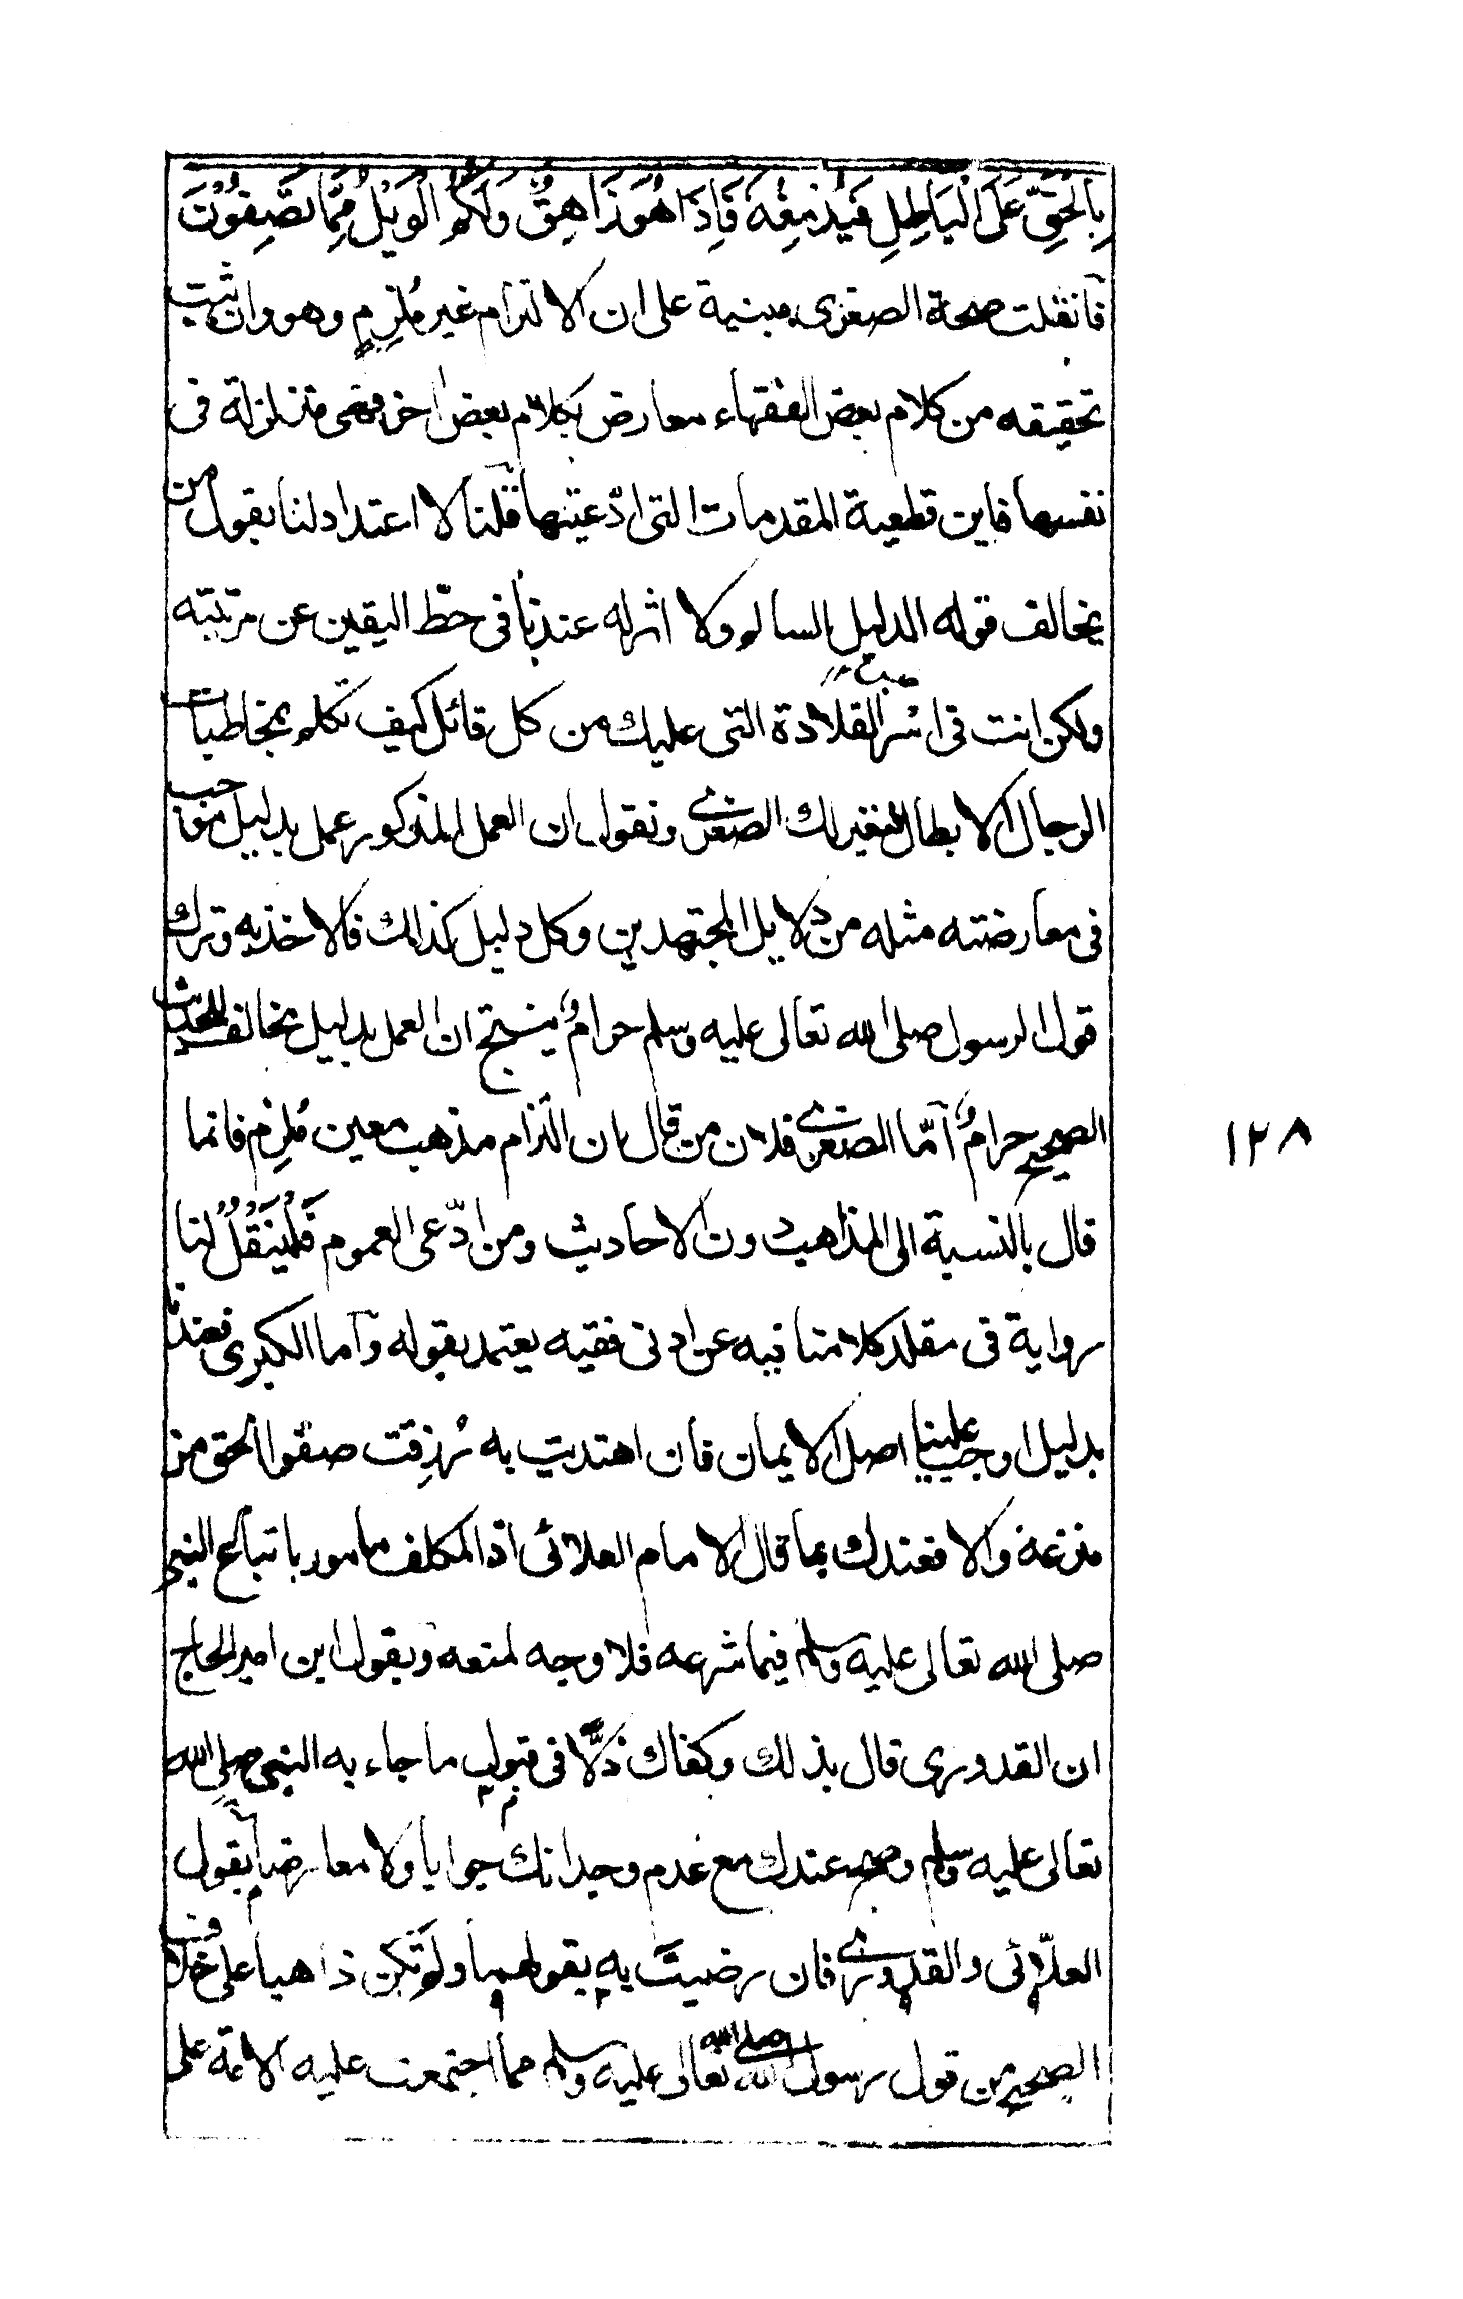 بِالْحَقِّ عَلَى الْبَاطِلِ فَيَدْمَغُهُ فَاِذَا هُوَ زَاهِقٌ وَلَكُمُ الْوَيْلُ مِمَّا تَصِفُوْنَ
فآنقلت صحة الصغرى مبنية على ان الالتزام غير مُلزِمٍ وهو وان ثبت
تحقيقه من كلام بعض الفقهاء معارض بكلام بعض اخر فهى متزلزلة فى
نفسها فاين قطعية المقدمات التى ادّعيتها قلنا لا اعتداد لنا بقول من
يخالف قوله الدليل السالم ولا اثر له عندنا فى حطّ اليقين عن مرتبته
ولكن انت فى اسْر القلادة التى عليك من كل قائل كيف تكلم بمخاطبات
الرجال الابطال فنغير لك الصغرى ونقول ان العمل المذكور عمل بدليل
فى معارضته مثله من دلايل المجتهدين وكل دليل كذلك فالاخذ به وترك
قول الرسول صلى الله تعالى عليه وسلم حرامٌ ينتج ان العمل بدليل يخالف للحديث
الصحيح حرامٌ آمّا الصغرى فلان من قال بان التزام مذهب معين مُلزِم فانما
قال بالنسبة الى المذاهب دون الاحاديث ومن ادّعى العموم فَلْيَنْقُلْ لنا
رواية فى مقلد كلامنا فيه عن ادنى فقيه يعتمد بقوله وآما الكبرى فعندنا
بدليل اوجب علينا اصل الايمان فان اهتديت به رُزِقت صفو الحق من
منزعه والا فعندك بما قال الامام العلائى اذ المكلف مامور باتباع النبى
صلى الله تعالى عليه وسلم فيما شرعه فلا وجه لمنعه وبقول ابن امير الحاج
ان القدورى قال بذلك وكفاك ذُلًّا فى قبول ما جاء به النبى صلى الله
تعالى عليه وسلم وصح عندك مع عدم وجدانك جوابا ولا معارضا بقول
العلّائى والقدورى فان رضيتَ به بقولهما ولم تكن ذاهبا على خلاف
الصحيح من قول رسول الله صلى الله تعالى عليه وسلم مما اجتمعت عليه الامة على
١٢٨